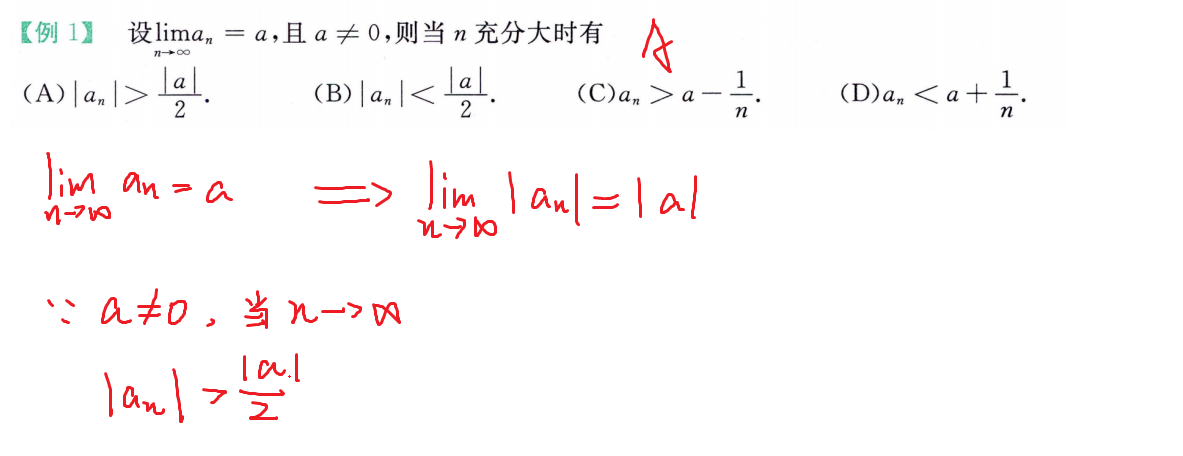 【例 1】 设 lim_{n→∞} aₙ = a,且 a ≠ 0,则当 n 充分大时有 A
(A)|aₙ| > |a|/2. (B)|aₙ| < |a|/2. (C)aₙ > a − 1/n. (D)aₙ < a + 1/n.
lim_{n→∞} aₙ = a ⟹ lim_{n→∞} |aₙ| = |a|
∵ a≠0, 当 n→∞
|aₙ| > |a|/2